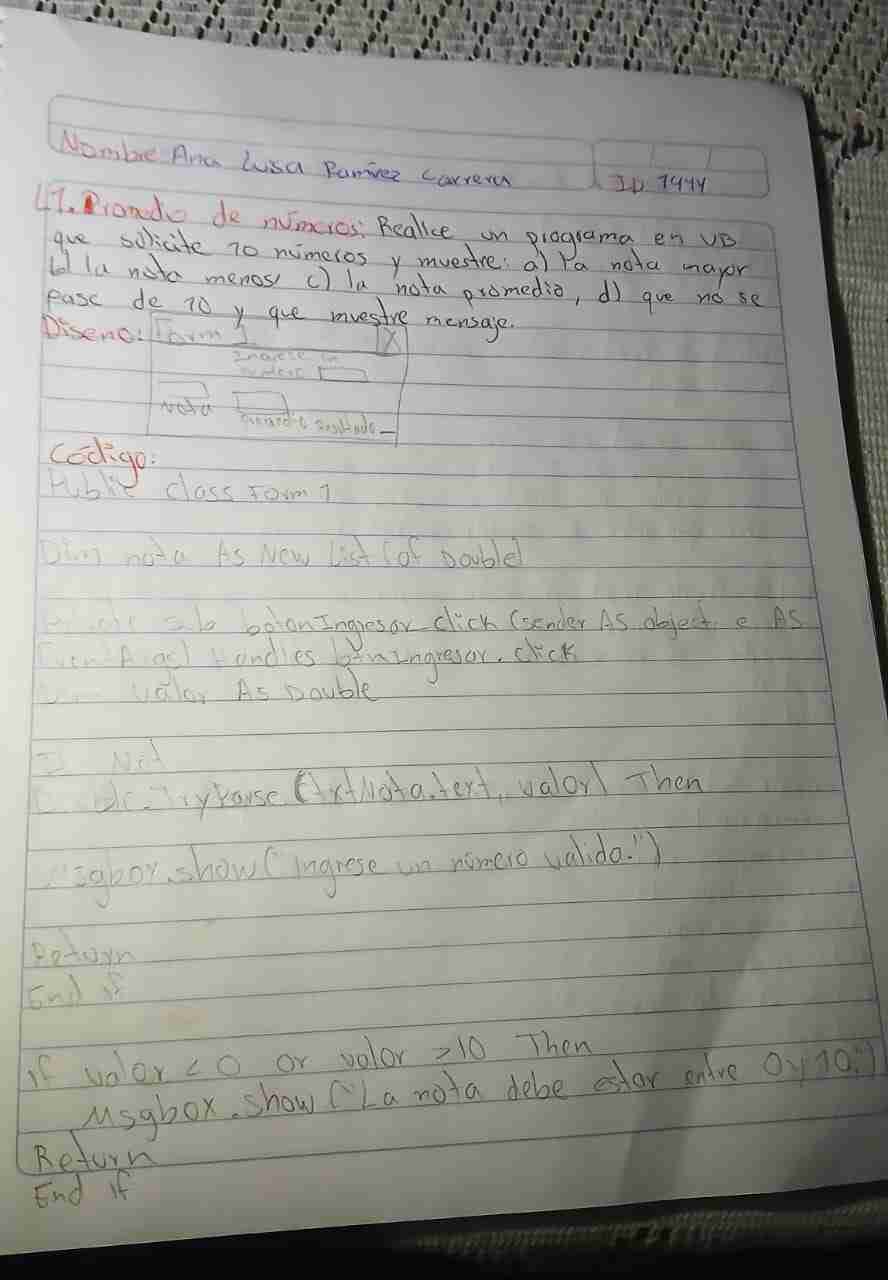 Nombre Ana Luisa Ramírez Carrera
ID 7444
47. Promedio de números: Realice un programa en VB
que solicite 10 números y muestre: a) La nota mayor
b) la nota menos c) la nota promedio, d) que no se
pase de 10 y que muestre mensaje.
Diseño: Form 1 X
Ingrese un
número
Nota
Promedio Resultado
Código:
Public class Form 1
Dim nota As New List (of Double)
Private sub botonIngresar_click (sender AS object, e AS
EventArgs) Handles btnIngresar.click
Dim valor As Double
If Not
Double.TryParse (txtNota.text, valor) Then
Msgbox.show ("ingrese un número valido.")
Return
End if
if valor < 0 or valor >10 Then
Msgbox.show ("La nota debe estar entre 0 y 10.")
Return
End if